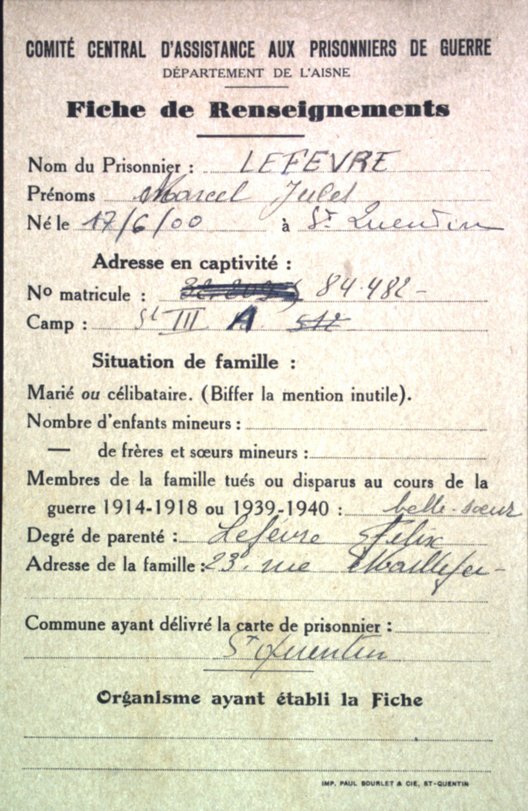 COMITÉ CENTRAL D'ASSISTANCE AUX PRISONNIERS DE GUERRE
DÉPARTEMENT DE L'AISNE
Fiche de Renseignements
Nom du Prisonnier : LEFEVRE
Prénoms Marcel Jules
Né le 17/6/00 à St Quentin
Adresse en captivité :
No matricule : 84.482 -
Camp : St III A
Situation de famille :
Marié ou célibataire. (Biffer la mention inutile).
Nombre d'enfants mineurs :
— de frères et sœurs mineurs :
Membres de la famille tués ou disparus au cours de la
guerre 1914-1918 ou 1939-1940 : belle-sœur
Degré de parenté : Lefèvre Felix
Adresse de la famille : 23. rue
Commune ayant délivré la carte de prisonnier :
St Quentin
Organisme ayant établi la Fiche
IMP. PAUL BOURLET & CIE, ST-QUENTIN